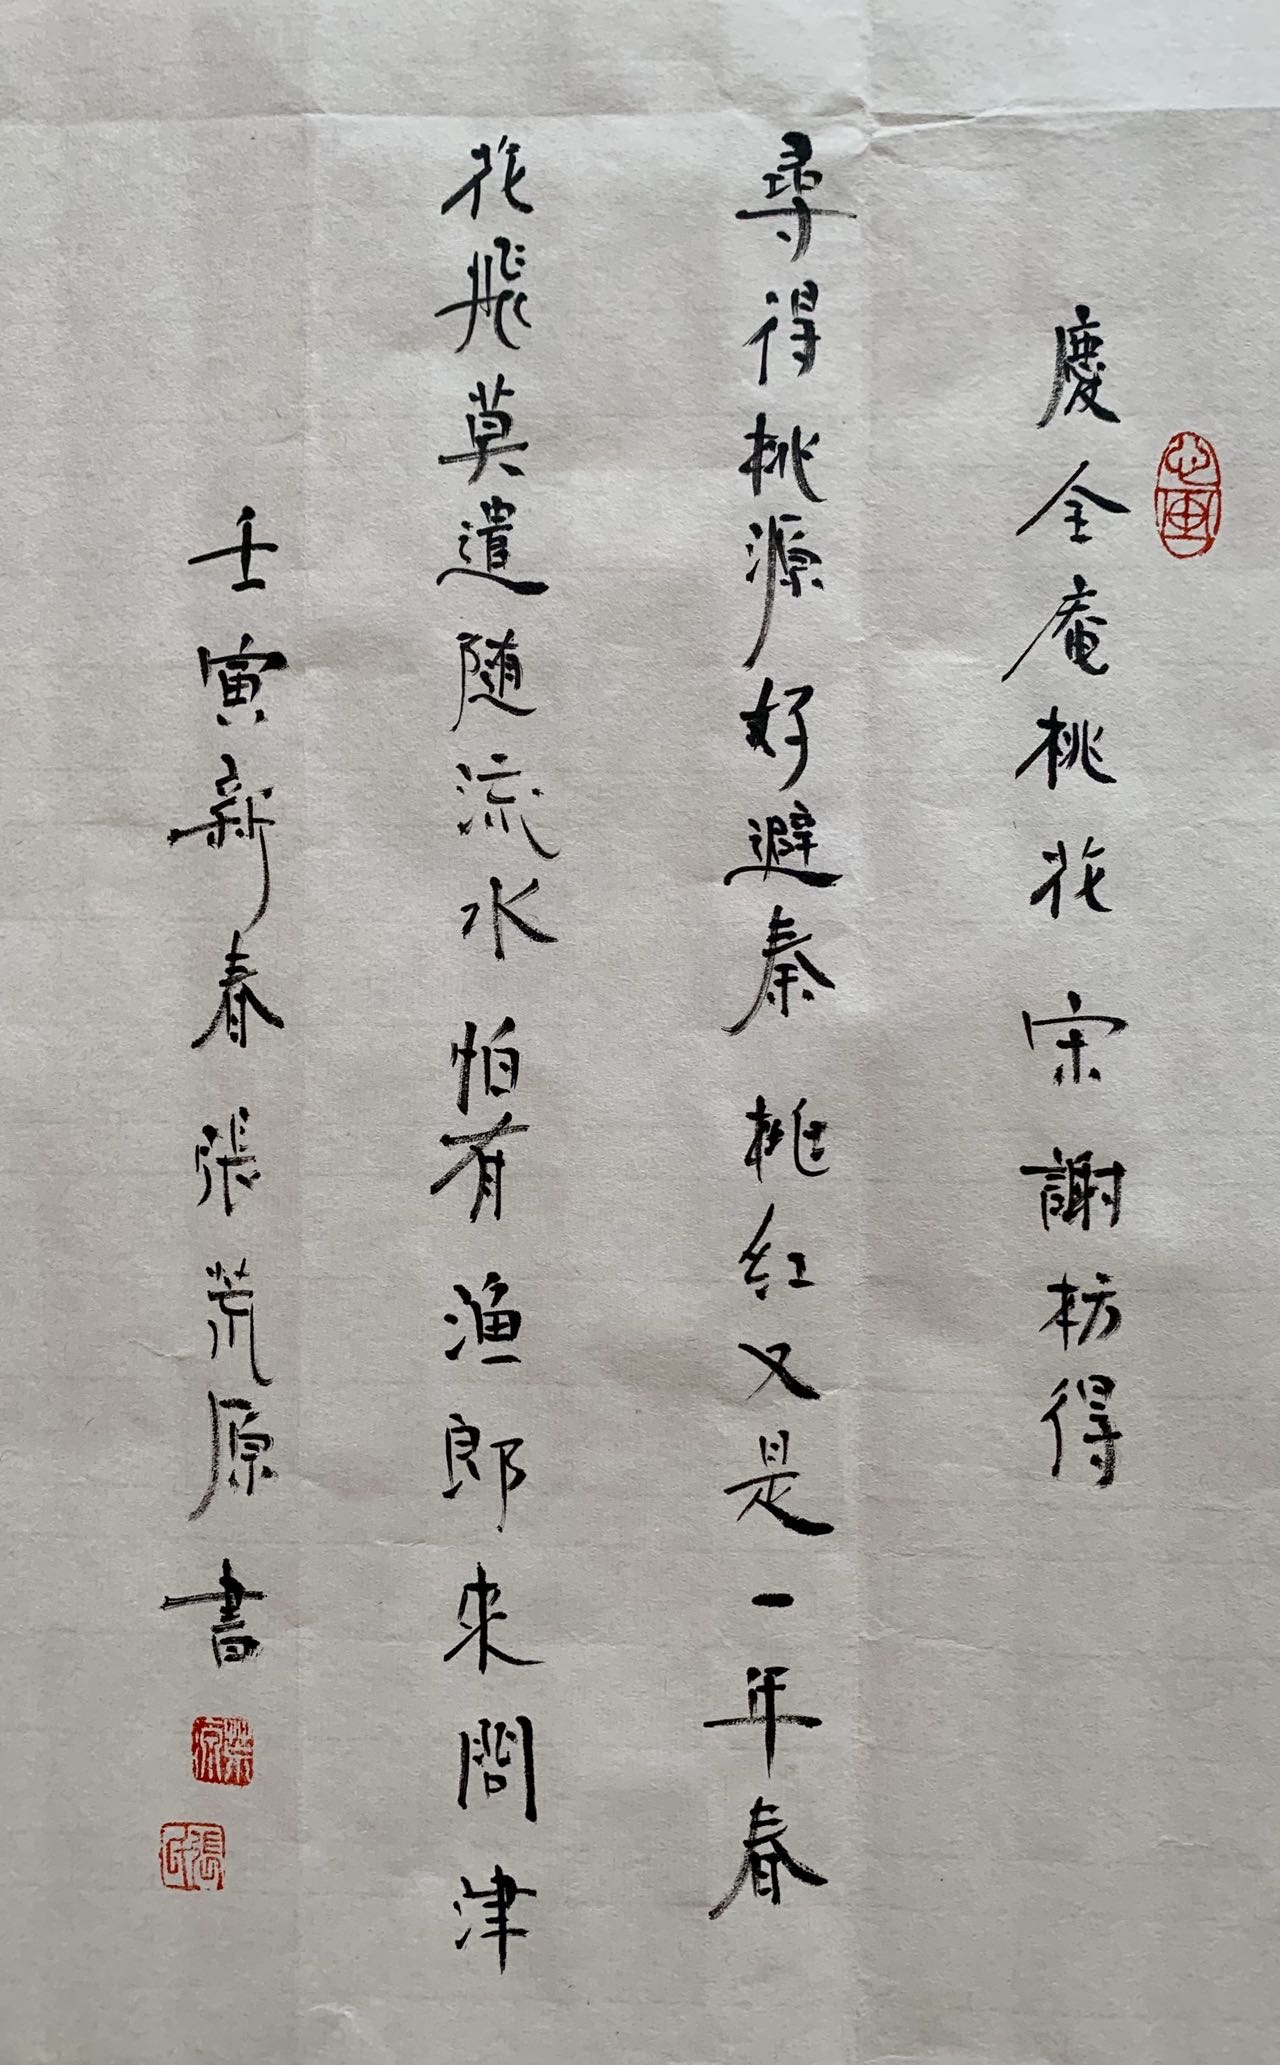 慶全庵桃花 宋 謝枋得
尋得桃源好避秦 桃紅又是一年春
花飛莫遣随流水 怕有漁郎來問津
壬寅新春 張荒原書
心画
荒原
張氏